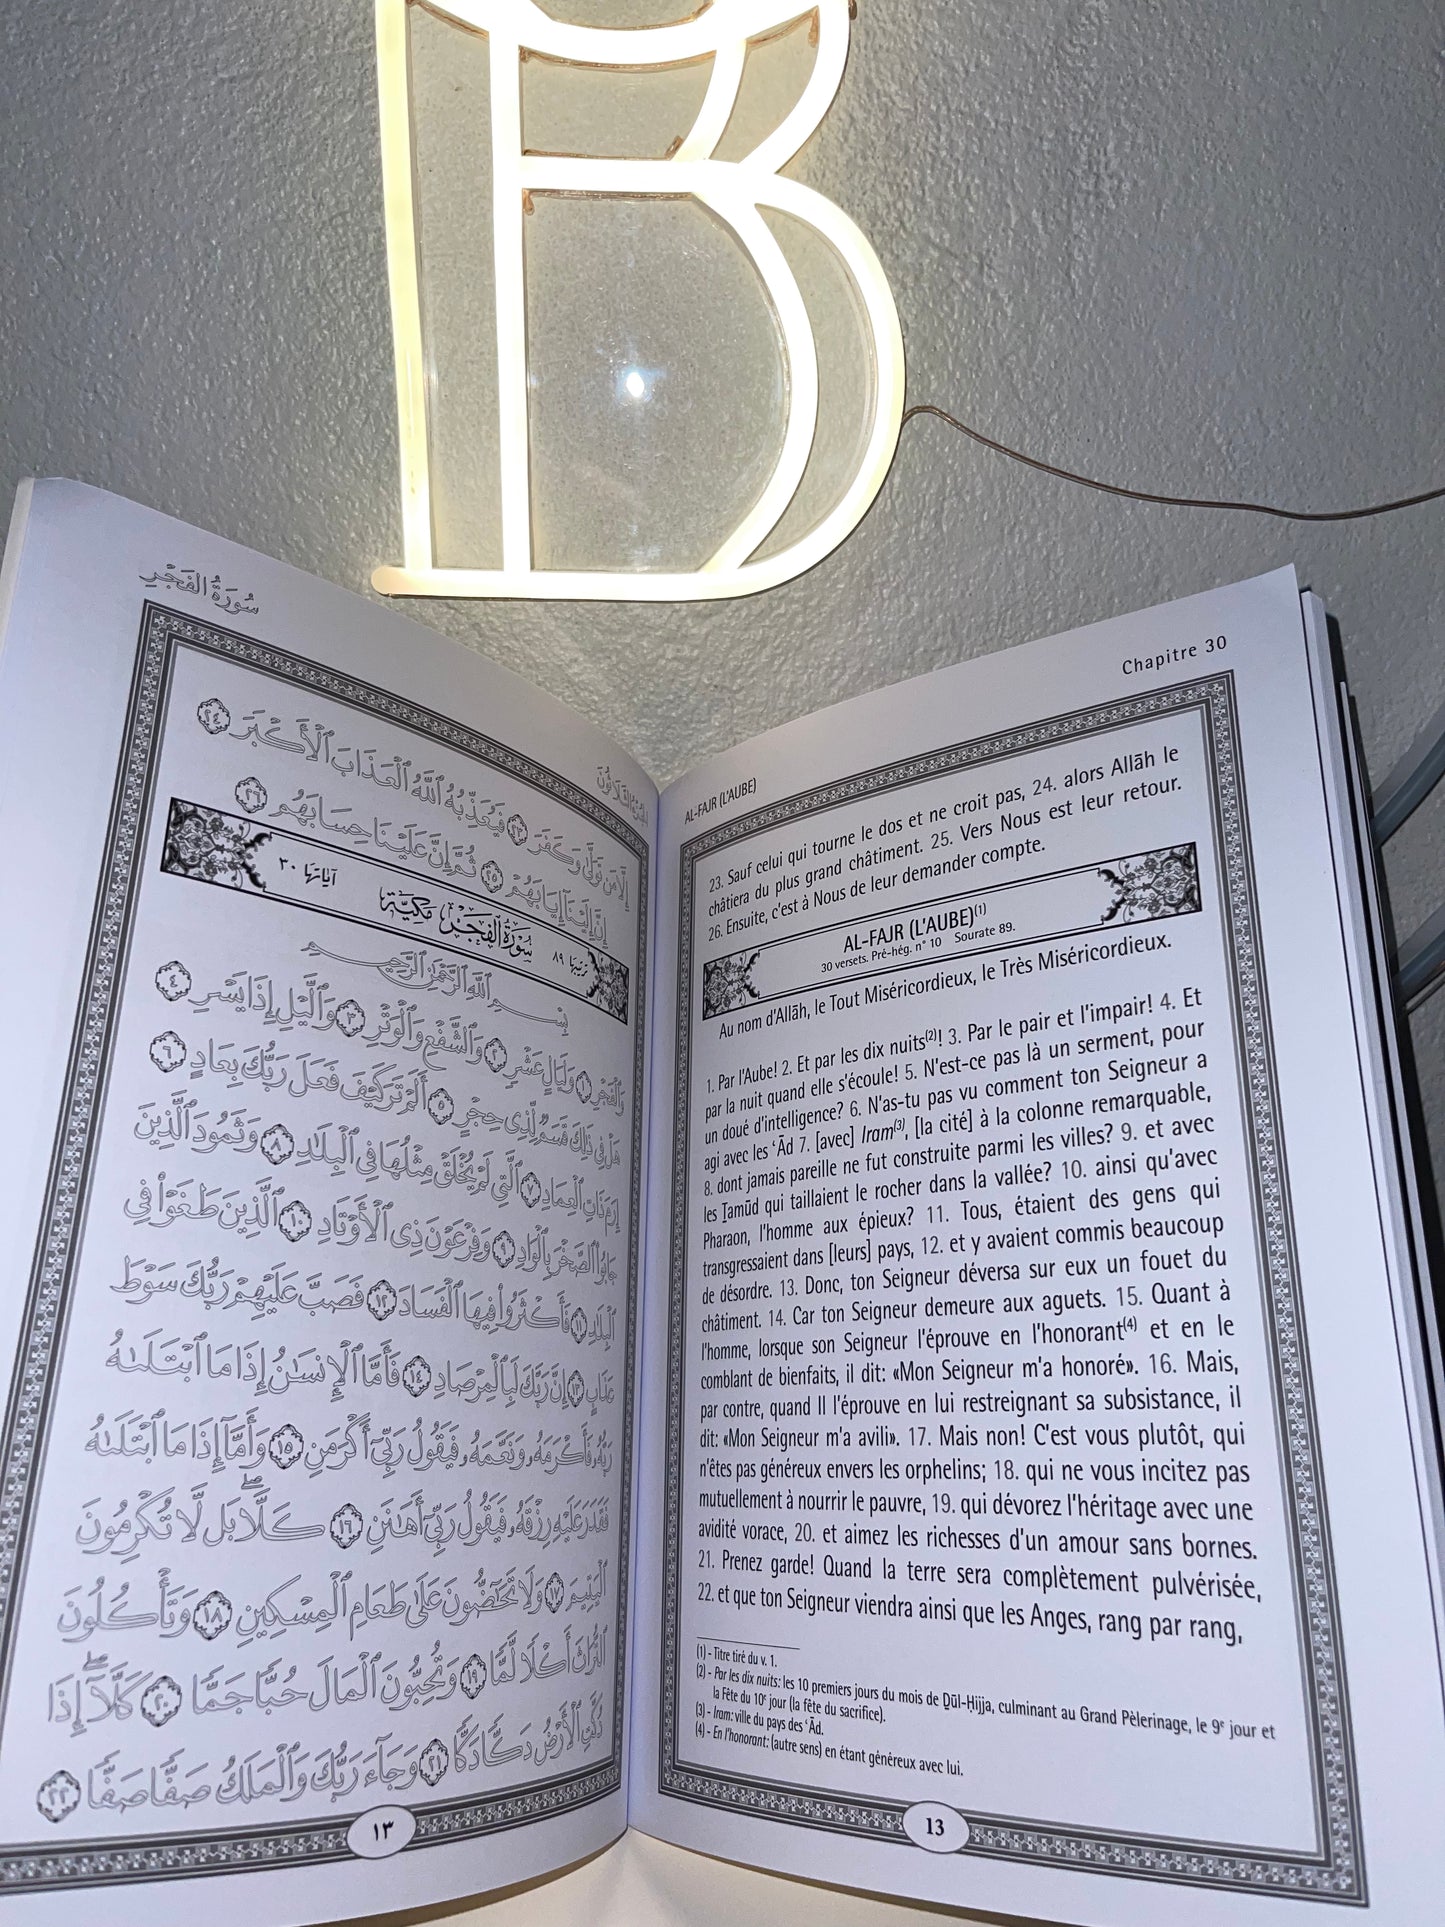 B
سُورَةُ الفَجْرِ
الجُزْءُ الثَّلَاثُونَ
إِلَّا مَن تَوَلَّىٰ وَكَفَرَ ٢٣ فَيُعَذِّبُهُ ٱللَّهُ ٱلْعَذَابَ ٱلْأَكْبَرَ ٢٤
إِنَّ إِلَيْنَآ إِيَابَهُمْ ٢٥ ثُمَّ إِنَّ عَلَيْنَا حِسَابَهُم ٢٦
ترتيبها ٨٩ سُورَةُ الفَجْرِ مَكِّيَّة آياتها ٣٠
بِسْمِ ٱللَّهِ ٱلرَّحْمَٰنِ ٱلرَّحِيمِ
وَٱلْفَجْرِ ١ وَلَيَالٍ عَشْرٍ ٢ وَٱلشَّفْعِ وَٱلْوَتْرِ ٣ وَٱلَّيْلِ إِذَا يَسْرِ ٤
هَلْ فِى ذَٰلِكَ قَسَمٌ لِّذِى حِجْرٍ ٥ أَلَمْ تَرَ كَيْفَ فَعَلَ رَبُّكَ بِعَادٍ ٦
إِرَمَ ذَاتِ ٱلْعِمَادِ ٧ ٱلَّتِى لَمْ يُخْلَقْ مِثْلُهَا فِى ٱلْبِلَٰدِ ٨ وَثَمُودَ ٱلَّذِينَ
جَابُوا۟ ٱلصَّخْرَ بِٱلْوَادِ ٩ وَفِرْعَوْنَ ذِى ٱلْأَوْتَادِ ١٠ ٱلَّذِينَ طَغَوْا۟ فِى
ٱلْبِلَٰدِ ١١ فَأَكْثَرُوا۟ فِيهَا ٱلْفَسَادَ ١٢ فَصَبَّ عَلَيْهِمْ رَبُّكَ سَوْطَ
عَذَابٍ ١٣ إِنَّ رَبَّكَ لَبِٱلْمِرْصَادِ ١٤ فَأَمَّا ٱلْإِنسَٰنُ إِذَا مَا ٱبْتَلَىٰهُ
رَبُّهُۥ فَأَكْرَمَهُۥ وَنَعَّمَهُۥ فَيَقُولُ رَبِّىٓ أَكْرَمَنِ ١٥ وَأَمَّآ إِذَا مَا ٱبْتَلَىٰهُ
فَقَدَرَ عَلَيْهِ رِزْقَهُۥ فَيَقُولُ رَبِّىٓ أَهَٰنَنِ ١٦ كَلَّا ۖ بَل لَّا تُكْرِمُونَ
ٱلْيَتِيمَ ١٧ وَلَا تَحَٰٓضُّونَ عَلَىٰ طَعَامِ ٱلْمِسْكِينِ ١٨ وَتَأْكُلُونَ
ٱلتُّرَاثَ أَكْلًا لَّمًّا ١٩ وَتُحِبُّونَ ٱلْمَالَ حُبًّا جَمًّا ٢٠ كَلَّآ ۖ إِذَا
دُكَّتِ ٱلْأَرْضُ دَكًّا دَكًّا ٢١ وَجَآءَ رَبُّكَ وَٱلْمَلَكُ صَفًّا صَفًّا ٢٢
١٣
AL-FAJR (L'AUBE)
Chapitre 30
23. Sauf celui qui tourne le dos et ne croit pas, 24. alors Allāh le
châtiera du plus grand châtiment. 25. Vers Nous est leur retour.
26. Ensuite, c'est à Nous de leur demander compte.
AL-FAJR (L'AUBE)(1)
30 versets. Pré-hég. n° 10 Sourate 89.
Au nom d'Allāh, le Tout Miséricordieux, le Très Miséricordieux.
1. Par l'Aube! 2. Et par les dix nuits(2)! 3. Par le pair et l'impair! 4. Et
par la nuit quand elle s'écoule! 5. N'est-ce pas là un serment, pour
un doué d'intelligence? 6. N'as-tu pas vu comment ton Seigneur a
agi avec les ʿĀd 7. [avec] Iram(3), [la cité] à la colonne remarquable,
8. dont jamais pareille ne fut construite parmi les villes? 9. et avec
les Ṯamūd qui taillaient le rocher dans la vallée? 10. ainsi qu'avec
Pharaon, l'homme aux épieux? 11. Tous, étaient des gens qui
transgressaient dans [leurs] pays, 12. et y avaient commis beaucoup
de désordre. 13. Donc, ton Seigneur déversa sur eux un fouet du
châtiment. 14. Car ton Seigneur demeure aux aguets. 15. Quant à
l'homme, lorsque son Seigneur l'éprouve en l'honorant(4) et en le
comblant de bienfaits, il dit: «Mon Seigneur m'a honoré». 16. Mais,
par contre, quand Il l'éprouve en lui restreignant sa subsistance, il
dit: «Mon Seigneur m'a avili». 17. Mais non! C'est vous plutôt, qui
n'êtes pas généreux envers les orphelins; 18. qui ne vous incitez pas
mutuellement à nourrir le pauvre, 19. qui dévorez l'héritage avec une
avidité vorace, 20. et aimez les richesses d'un amour sans bornes.
21. Prenez garde! Quand la terre sera complètement pulvérisée,
22. et que ton Seigneur viendra ainsi que les Anges, rang par rang,
(1) - Titre tiré du v. 1.
(2) - Par les dix nuits: les 10 premiers jours du mois de Ḏūl-Ḥijja, culminant au Grand Pèlerinage, le 9e jour et
la Fête du 10e jour (la fête du sacrifice).
(3) - Iram: ville du pays des ʿĀd.
(4) - En l'honorant: (autre sens) en étant généreux avec lui.
13